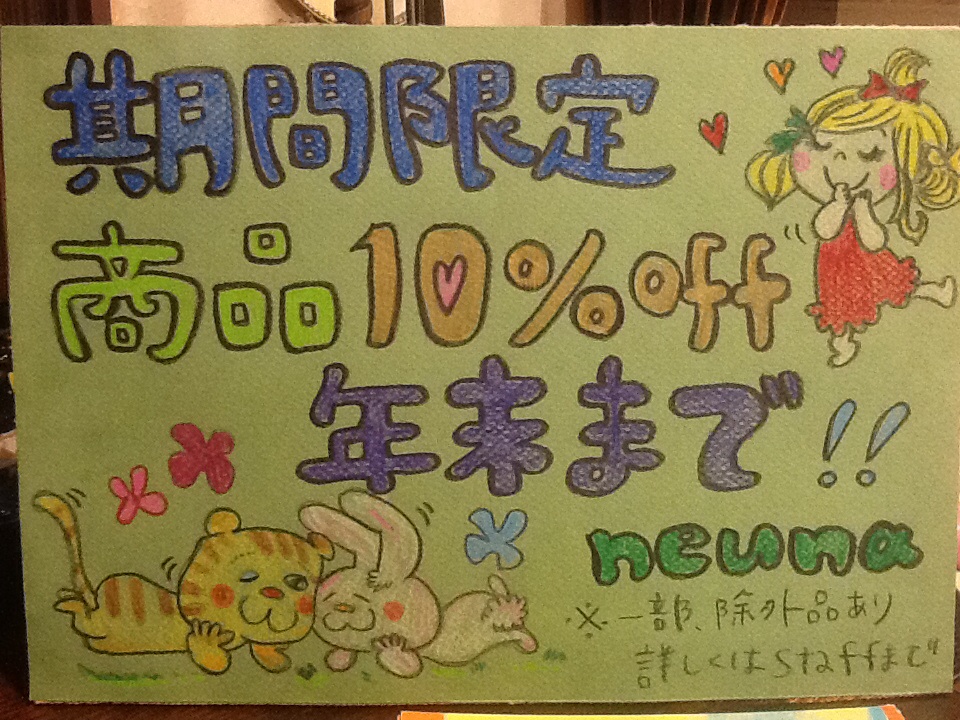 期間限定
商品10%off
年末まで!!
neuna
※一部、除外品あり
詳しくはstaffまで